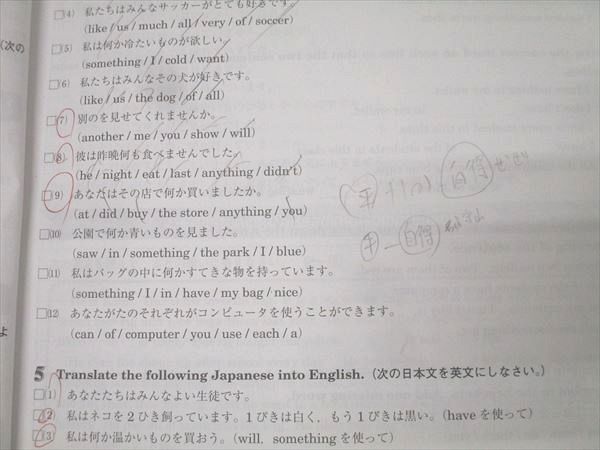 (4) 私たちはみんなサッカーがとても好きです。
(like / us / much / all / very / of / soccer)
(次の
(5) 私は何か冷たいものが欲しい。
(something / I / cold / want)
(6) 私たちはみんなその犬が好きです。
(like / us / the dog / of / all)
(7) 別のを見せてくれませんか。
(another / me / you / show / will)
(8) 彼は昨晩何も食べませんでした。
(he / night / eat / last / anything / didn't)
(9) あなたはその店で何か買いましたか。
(at / did / buy / the store / anything / you)
(10) 公園で何か青いものを見ました。
(saw / in / something / the park / I / blue)
(11) 私はバッグの中に何かすてきな物を持っています。
(something / I / in / have / my bag / nice)
(12) あなたがたのそれぞれがコンピュータを使うことができます。
(can / of / computer / you / use / each / a)
よ
5 Translate the following Japanese into English. (次の日本文を英文にしなさい。)
(1) あなたたちはみんなよい生徒です。
(2) 私はネコを2ひき飼っています。1ぴきは白く, もう1ぴきは黒い。(have を使って)
(3) 私は何か温かいものを買おう。(will, something を使って)